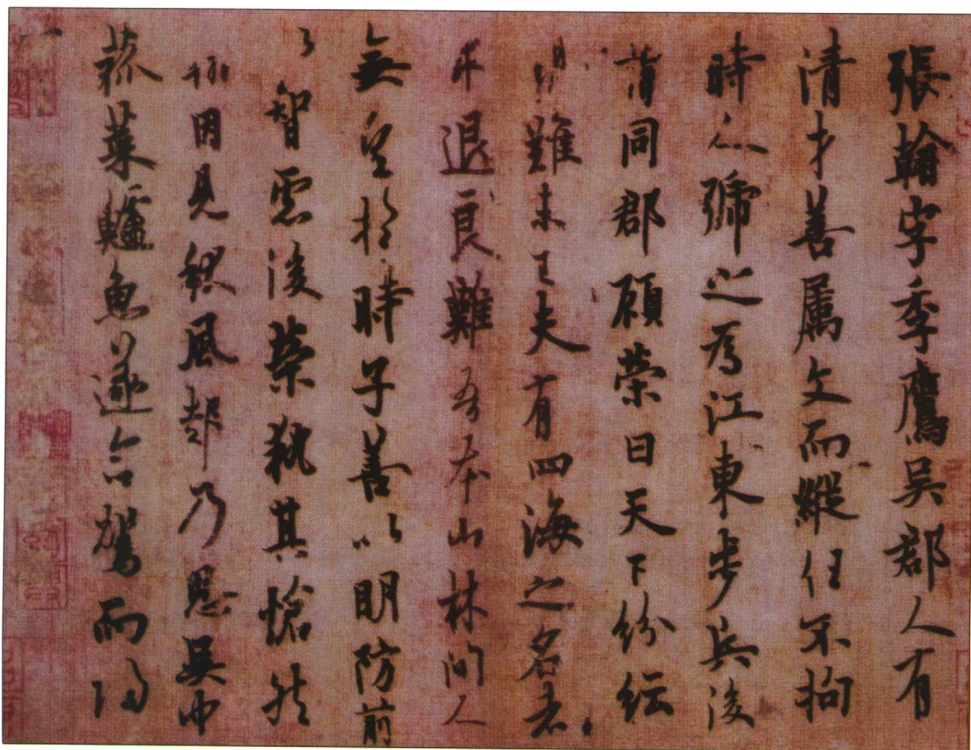 張翰字季鷹吳郡人有
清才善属文而縱任不拘
時人號之為江東步兵後
謂同郡顧榮曰天下紛紜
難未已夫有四海之名者
求退良難吾本山林間人
無望於時子善以明防前
以智慮後榮執其愴然
翰因見秋風起乃思吳中
菰菜鱸魚遂命駕而歸